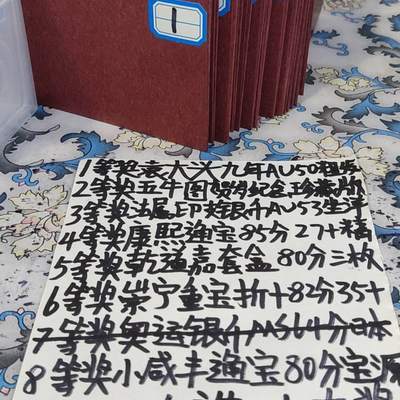 1
1等奖袁大头九年AU50粗发
2等奖五牛图
3等奖法属印支银元AU53坐洋
4等奖康熙通宝85分27+
5等奖乾道嘉套盒80分三枚
6等奖崇宁重宝折十82分35+
7等奖奥运银元MS64分日本
8等奖小咸丰通宝80分宝源